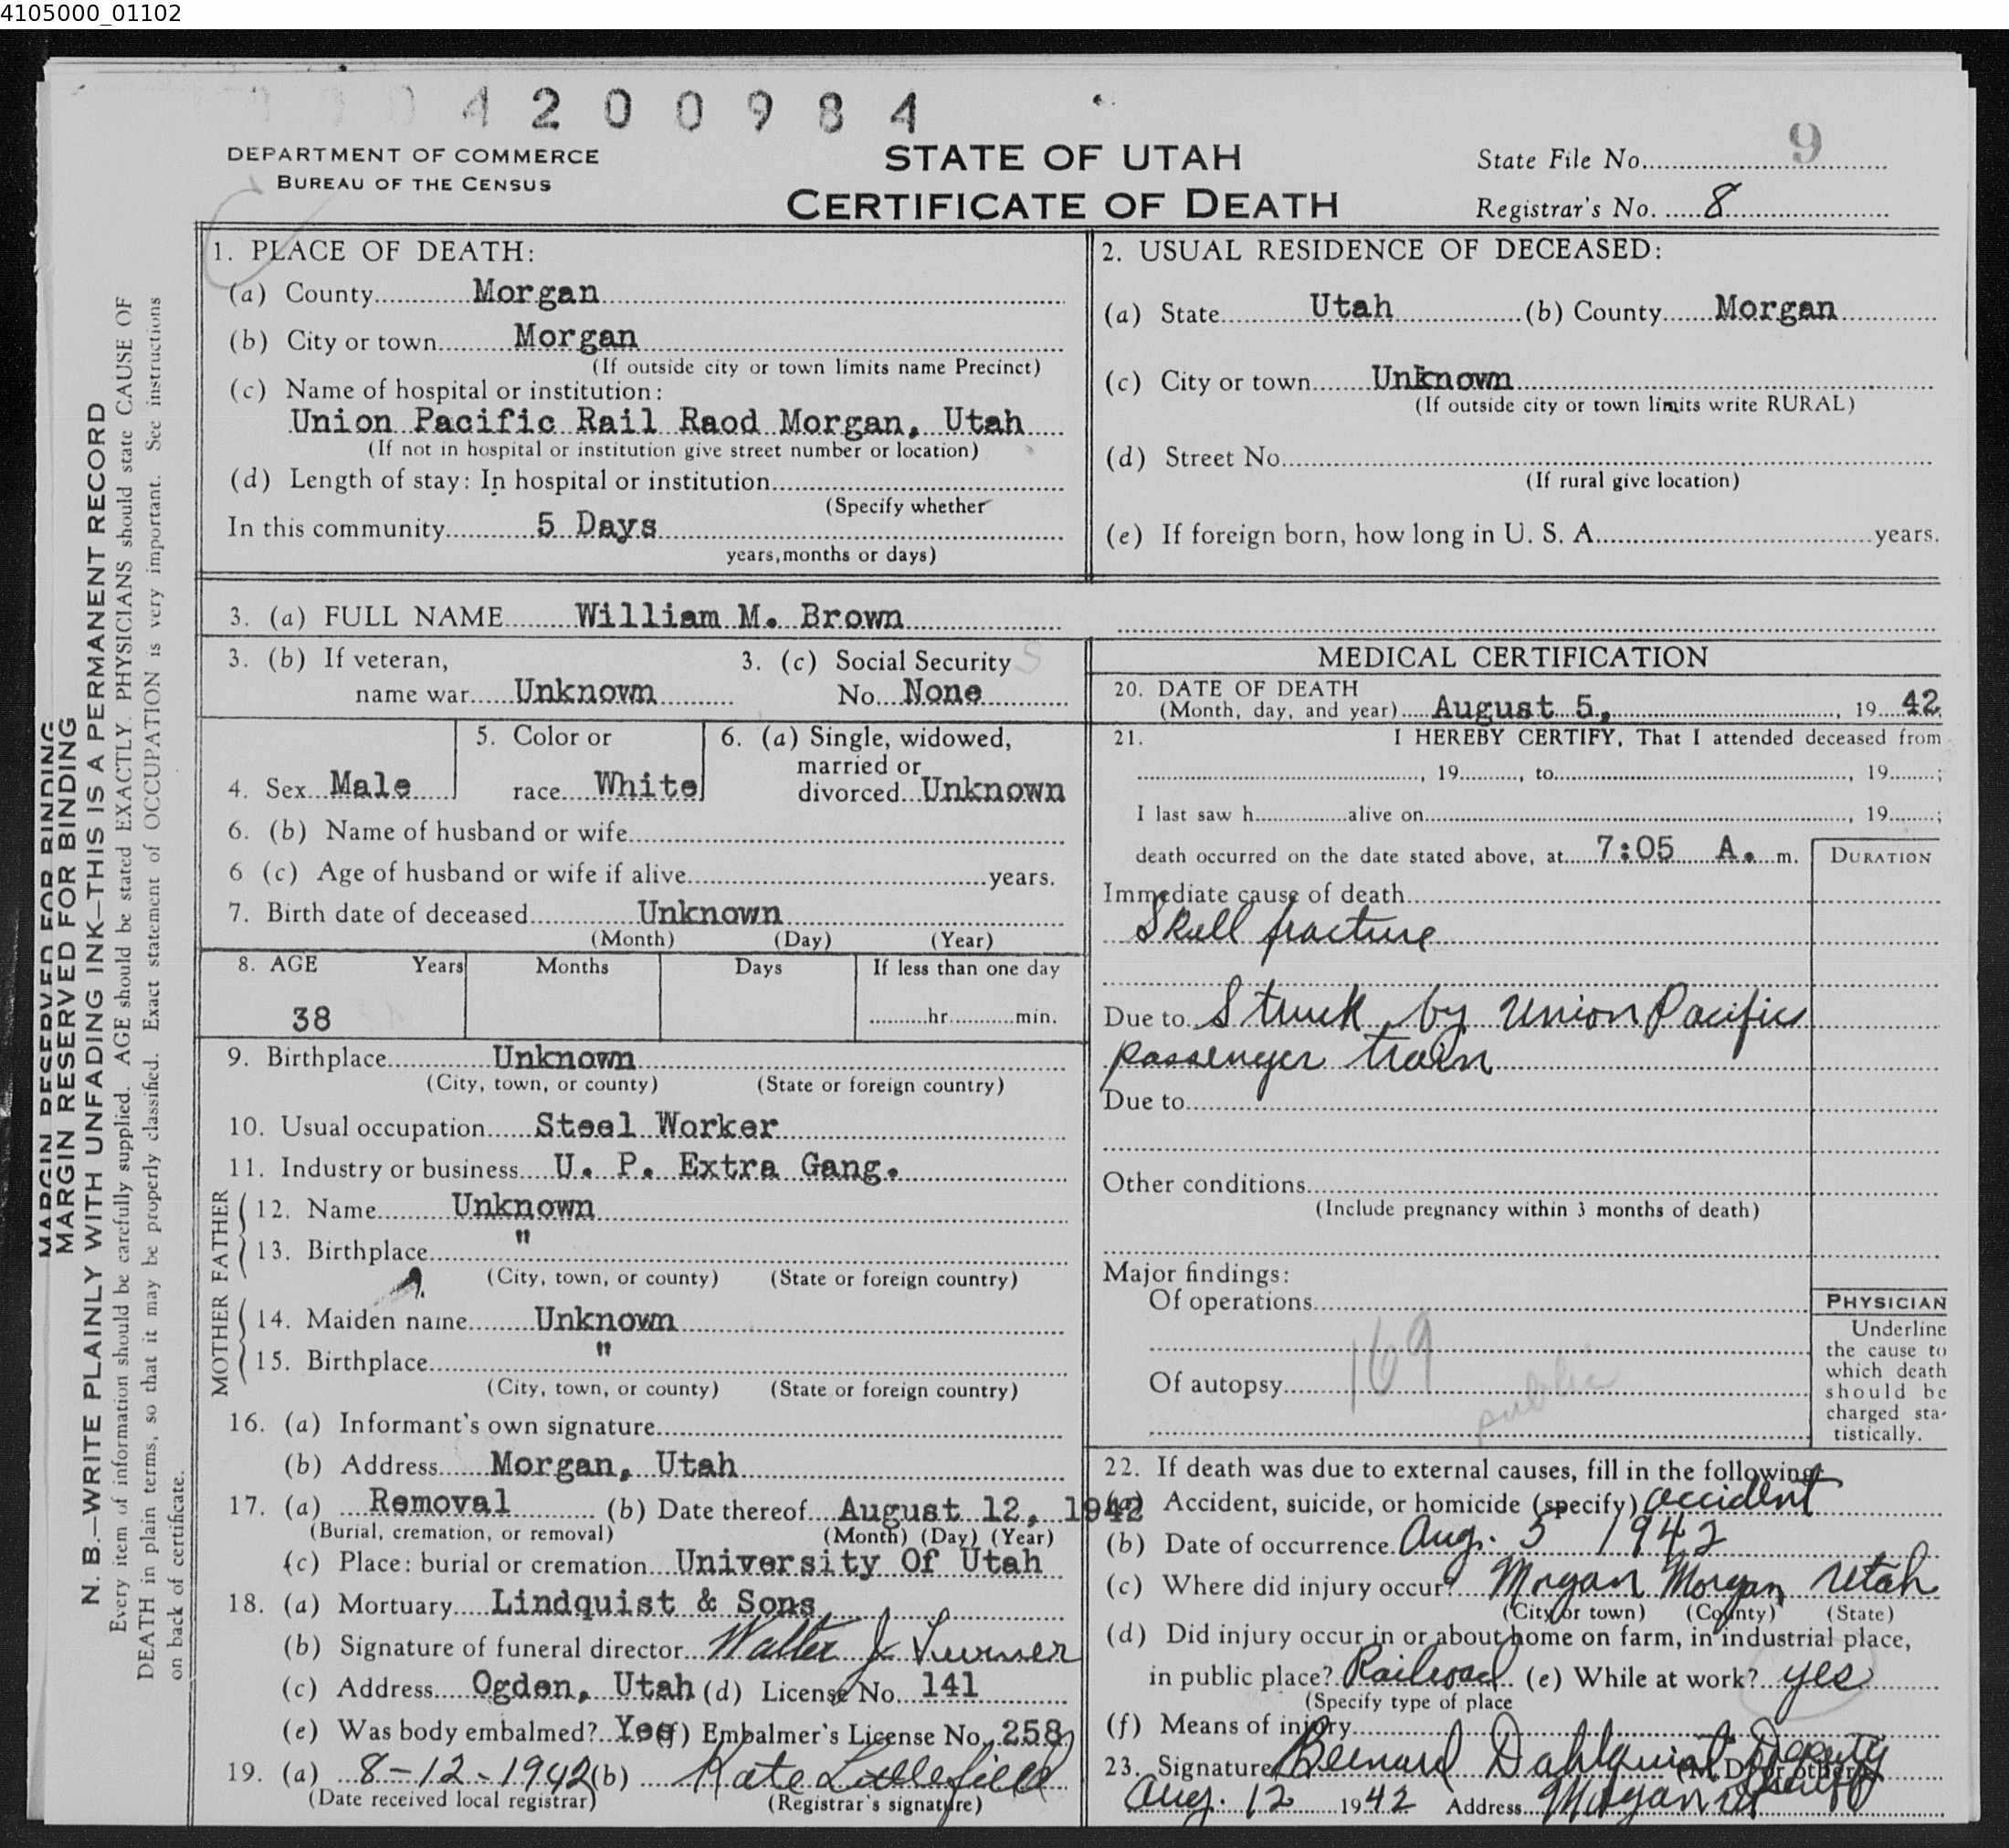 4105000_01102
4200984
DEPARTMENT OF COMMERCE
BUREAU OF THE CENSUS
STATE OF UTAH
CERTIFICATE OF DEATH
State File No. 9
Registrar's No. 8
MARGIN RESERVED FOR BINDING
MARGIN RESERVED FOR BINDING
N. B.—WRITE PLAINLY WITH UNFADING INK—THIS IS A PERMANENT RECORD
Every item of information should be carefully supplied. AGE should be stated EXACTLY. PHYSICIANS should state CAUSE OF
DEATH in plain terms, so that it may be properly classified. Exact statement of OCCUPATION is very important. See instructions
on back of certificate.
1. PLACE OF DEATH:
(a) County Morgan
(b) City or town Morgan
(If outside city or town limits name Precinct)
(c) Name of hospital or institution:
Union Pacific Rail Raod Morgan, Utah
(If not in hospital or institution give street number or location)
(d) Length of stay: In hospital or institution
(Specify whether
In this community 5 Days
years, months or days)
2. USUAL RESIDENCE OF DECEASED:
(a) State Utah (b) County Morgan
(c) City or town Unknown
(If outside city or town limits write RURAL)
(d) Street No.
(If rural give location)
(e) If foreign born, how long in U. S. A. years.
3. (a) FULL NAME William M. Brown
3. (b) If veteran,
name war Unknown
3. (c) Social Security
No. None
4. Sex Male
5. Color or
race White
6. (a) Single, widowed,
married or
divorced Unknown
6. (b) Name of husband or wife
6 (c) Age of husband or wife if alive years.
7. Birth date of deceased Unknown
(Month) (Day) (Year)
8. AGE Years Months Days If less than one day
38 hr. min.
9. Birthplace Unknown
(City, town, or county) (State or foreign country)
10. Usual occupation Steel Worker
11. Industry or business U. P. Extra Gang.
FATHER
12. Name Unknown
13. Birthplace "
(City, town, or county) (State or foreign country)
MOTHER
14. Maiden name Unknown
15. Birthplace "
(City, town, or county) (State or foreign country)
16. (a) Informant's own signature
(b) Address Morgan, Utah
17. (a) Removal (b) Date thereof August 12, 1942
(Burial, cremation, or removal) (Month) (Day) (Year)
(c) Place: burial or cremation University Of Utah
18. (a) Mortuary Lindquist & Sons
(b) Signature of funeral director Walter J Turner
(c) Address Ogden, Utah (d) License No. 141
(e) Was body embalmed? Yes (f) Embalmer's License No. 258
19. (a) 8-12-1942 (b) Kate Littlefield
(Date received local registrar) (Registrar's signature)
MEDICAL CERTIFICATION
20. DATE OF DEATH
(Month, day, and year) August 5, 1942
21. I HEREBY CERTIFY, That I attended deceased from
, 19 , to , 19 ;
I last saw h alive on , 19 ;
death occurred on the date stated above, at 7:05 A. m.
DURATION
Immediate cause of death
Skull fracture
Due to Struck by Union Pacific
passenger train
Due to
Other conditions
(Include pregnancy within 3 months of death)
Major findings:
Of operations
169
Of autopsy
public
PHYSICIAN
Underline
the cause to
which death
should be
charged sta-
tistically.
22. If death was due to external causes, fill in the following:
(a) Accident, suicide, or homicide (specify) accident
(b) Date of occurrence Aug. 5 1942
(c) Where did injury occur? Morgan Morgan Utah
(City or town) (County) (State)
(d) Did injury occur in or about home on farm, in industrial place,
in public place? Railroad (e) While at work? yes
(Specify type of place
(f) Means of injury
23. Signature Bernard Dahlquist Deputy Sheriff
(M. D. or other)
Aug. 12 1942 Address Morgan Ut